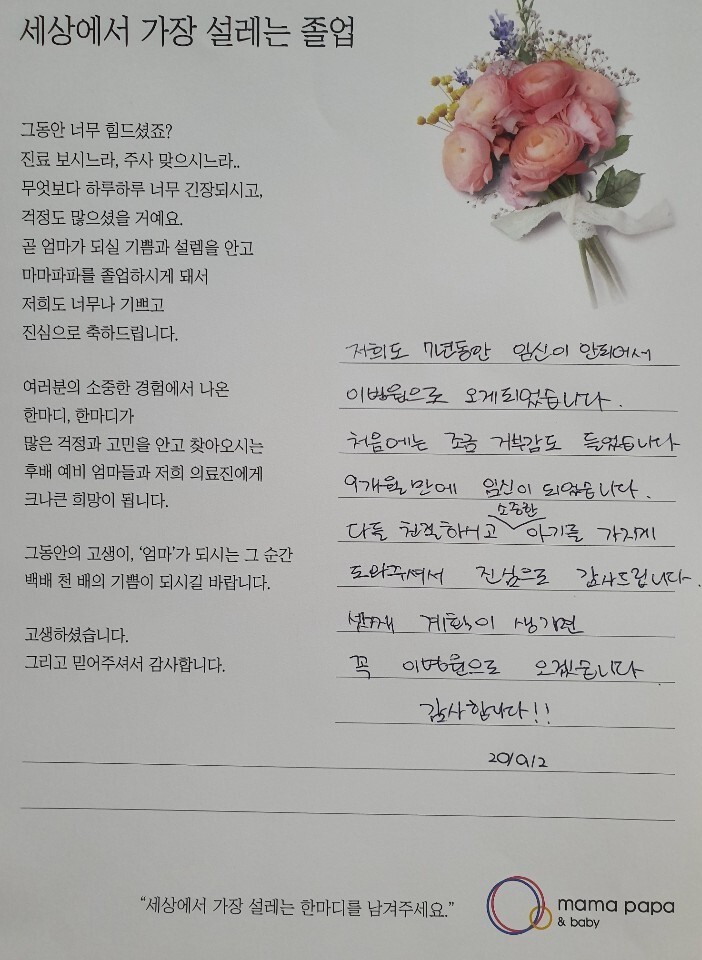 세상에서 가장 설레는 졸업
그동안 너무 힘드셨죠?
진료 보시느라, 주사 맞으시느라..
무엇보다 하루하루 너무 긴장되시고,
걱정도 많으셨을 거예요.
곧 엄마가 되실 기쁨과 설렘을 안고
마마파파를 졸업하시게 돼서
저희도 너무나 기쁘고
진심으로 축하드립니다.
여러분의 소중한 경험에서 나온
한마디, 한마디가
많은 걱정과 고민을 안고 찾아오시는
후배 예비 엄마들과 저희 의료진에게
크나큰 희망이 됩니다.
그동안의 고생이, '엄마'가 되시는 그 순간
백배 천 배의 기쁨이 되시길 바랍니다.
고생하셨습니다.
그리고 믿어주셔서 감사합니다.
저희도 7년동안 임신이 안되어서
이병원으로 오게되었습니다.
처음에는 조금 거부감도 들었습니다
9개월만에 임신이 되었습니다.
소중한
다들 친절하시고 아기를 가지게
도와주셔서 진심으로 감사드립니다.
둘째 계획이 생기면
꼭 이병원으로 오겠습니다
감사합니다!!
"세상에서 가장 설레는 한마디를 남겨주세요."
mama papa
& baby